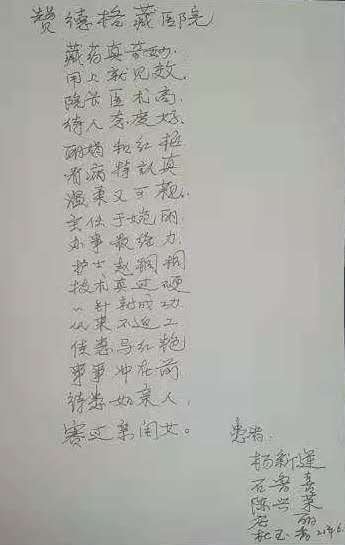 赞德格藏医院
藏药真奇妙.
用上就见效.
院长医术高.
待人态度好.
丽娟和红艳
看病特认真
温柔又可亲.
主任于婉丽
办事最给力.
护士赵娟娟
技术真过硬
一针就成功
从来不返工
侯惠马红艳
事事冲在前
待患如亲人.
赛过亲闺女。
患者:
杨新莲
石鲁喜
陈兴荣
宏丽
杜玉 21年6.